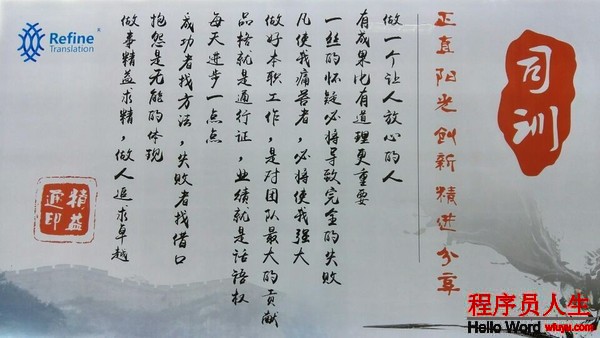 司训
正直 阳光 创新 精进 分享
做一个让人放心的人
有成果比有道理更重要
一丝的怀疑必将导致完全的失败
凡使我痛苦者，必将使我强大
做好本职工作，是对团队最大的贡献
品格就是通行证，业绩就是话语权
每天进步一点点
成功者找方法，失败者找借口
抱怨是无能的体现
做事精益求精，做人追求卓越
Refine®
Translation
精益
通印
程序员人生
Hello Word wfuyu.com